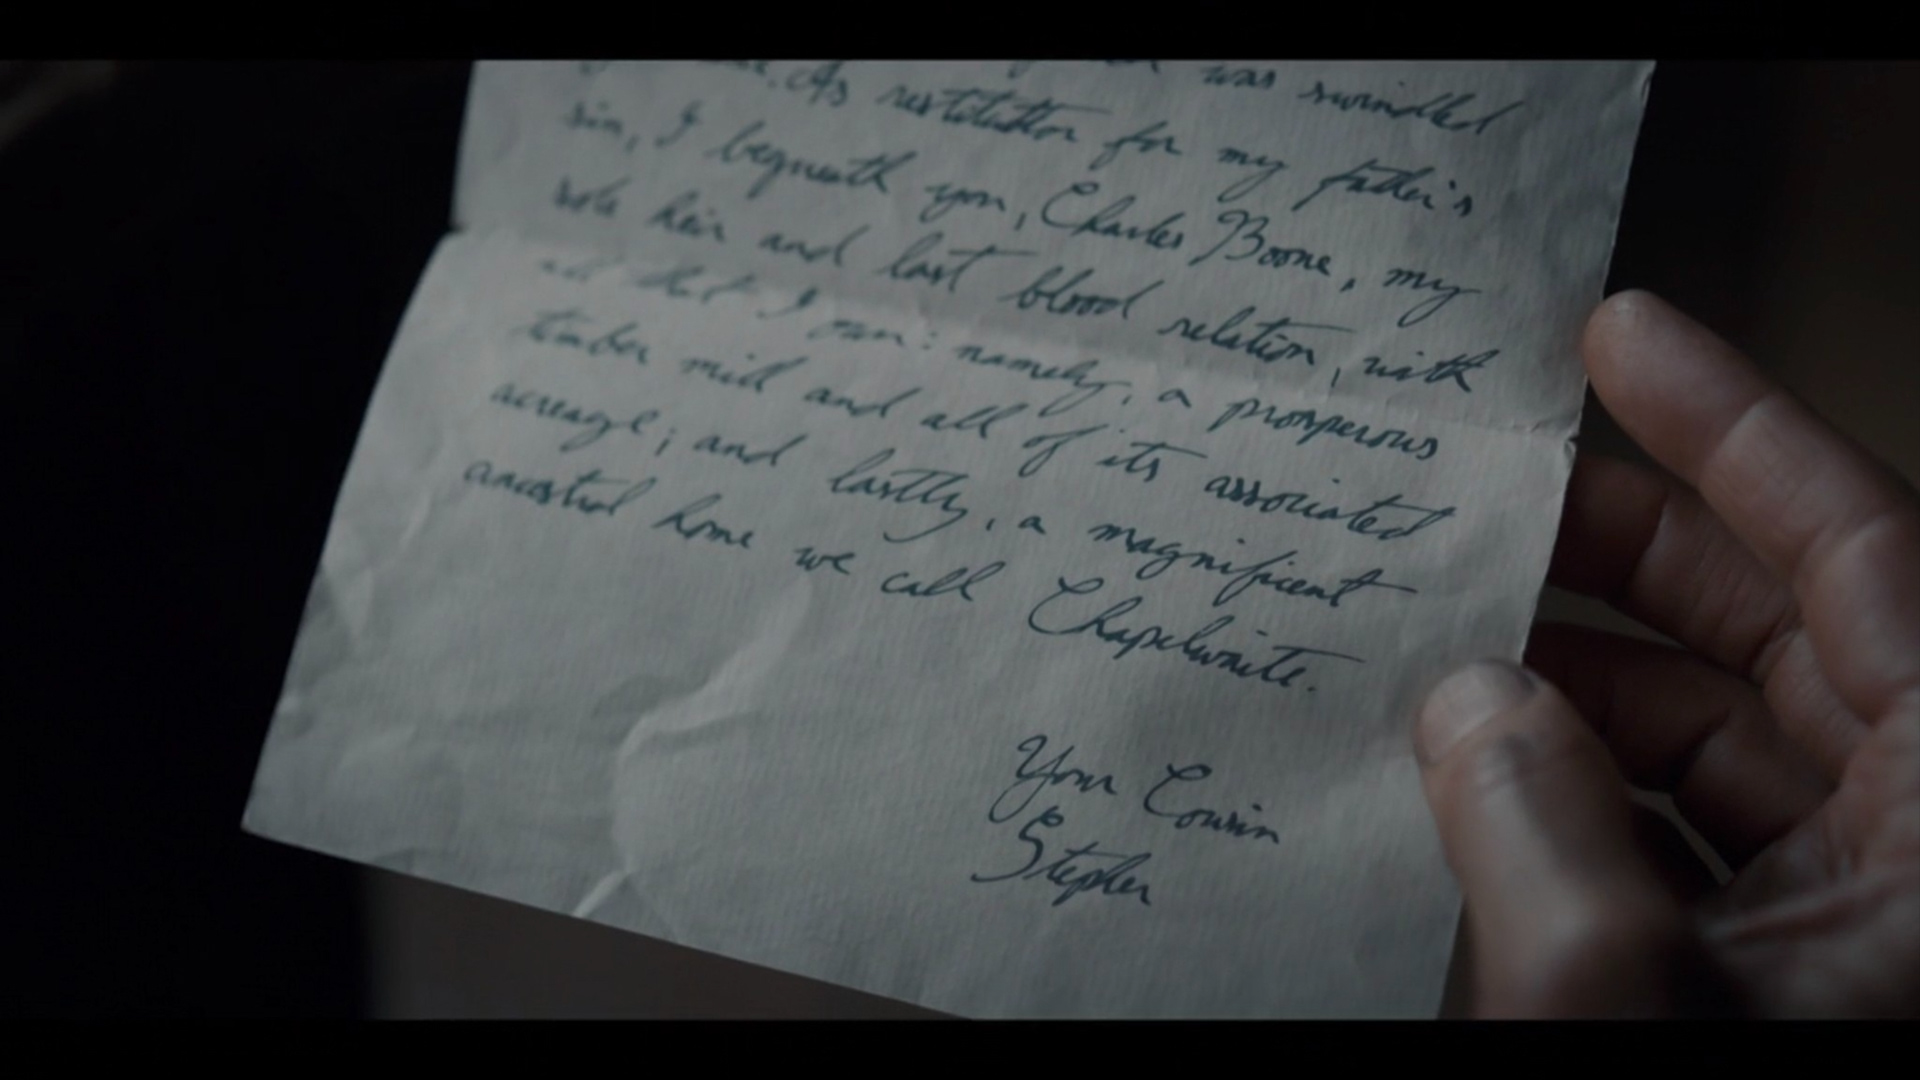 was swindled
As restitution for my father's
sin, I bequeath you, Charles Boone, my
sole heir and last blood relation, with
all that I own: namely, a prosperous
timber mill and all of its associated
acreage; and lastly, a magnificent
ancestral home we call Chapelwaite.
Your Cousin
Stephen